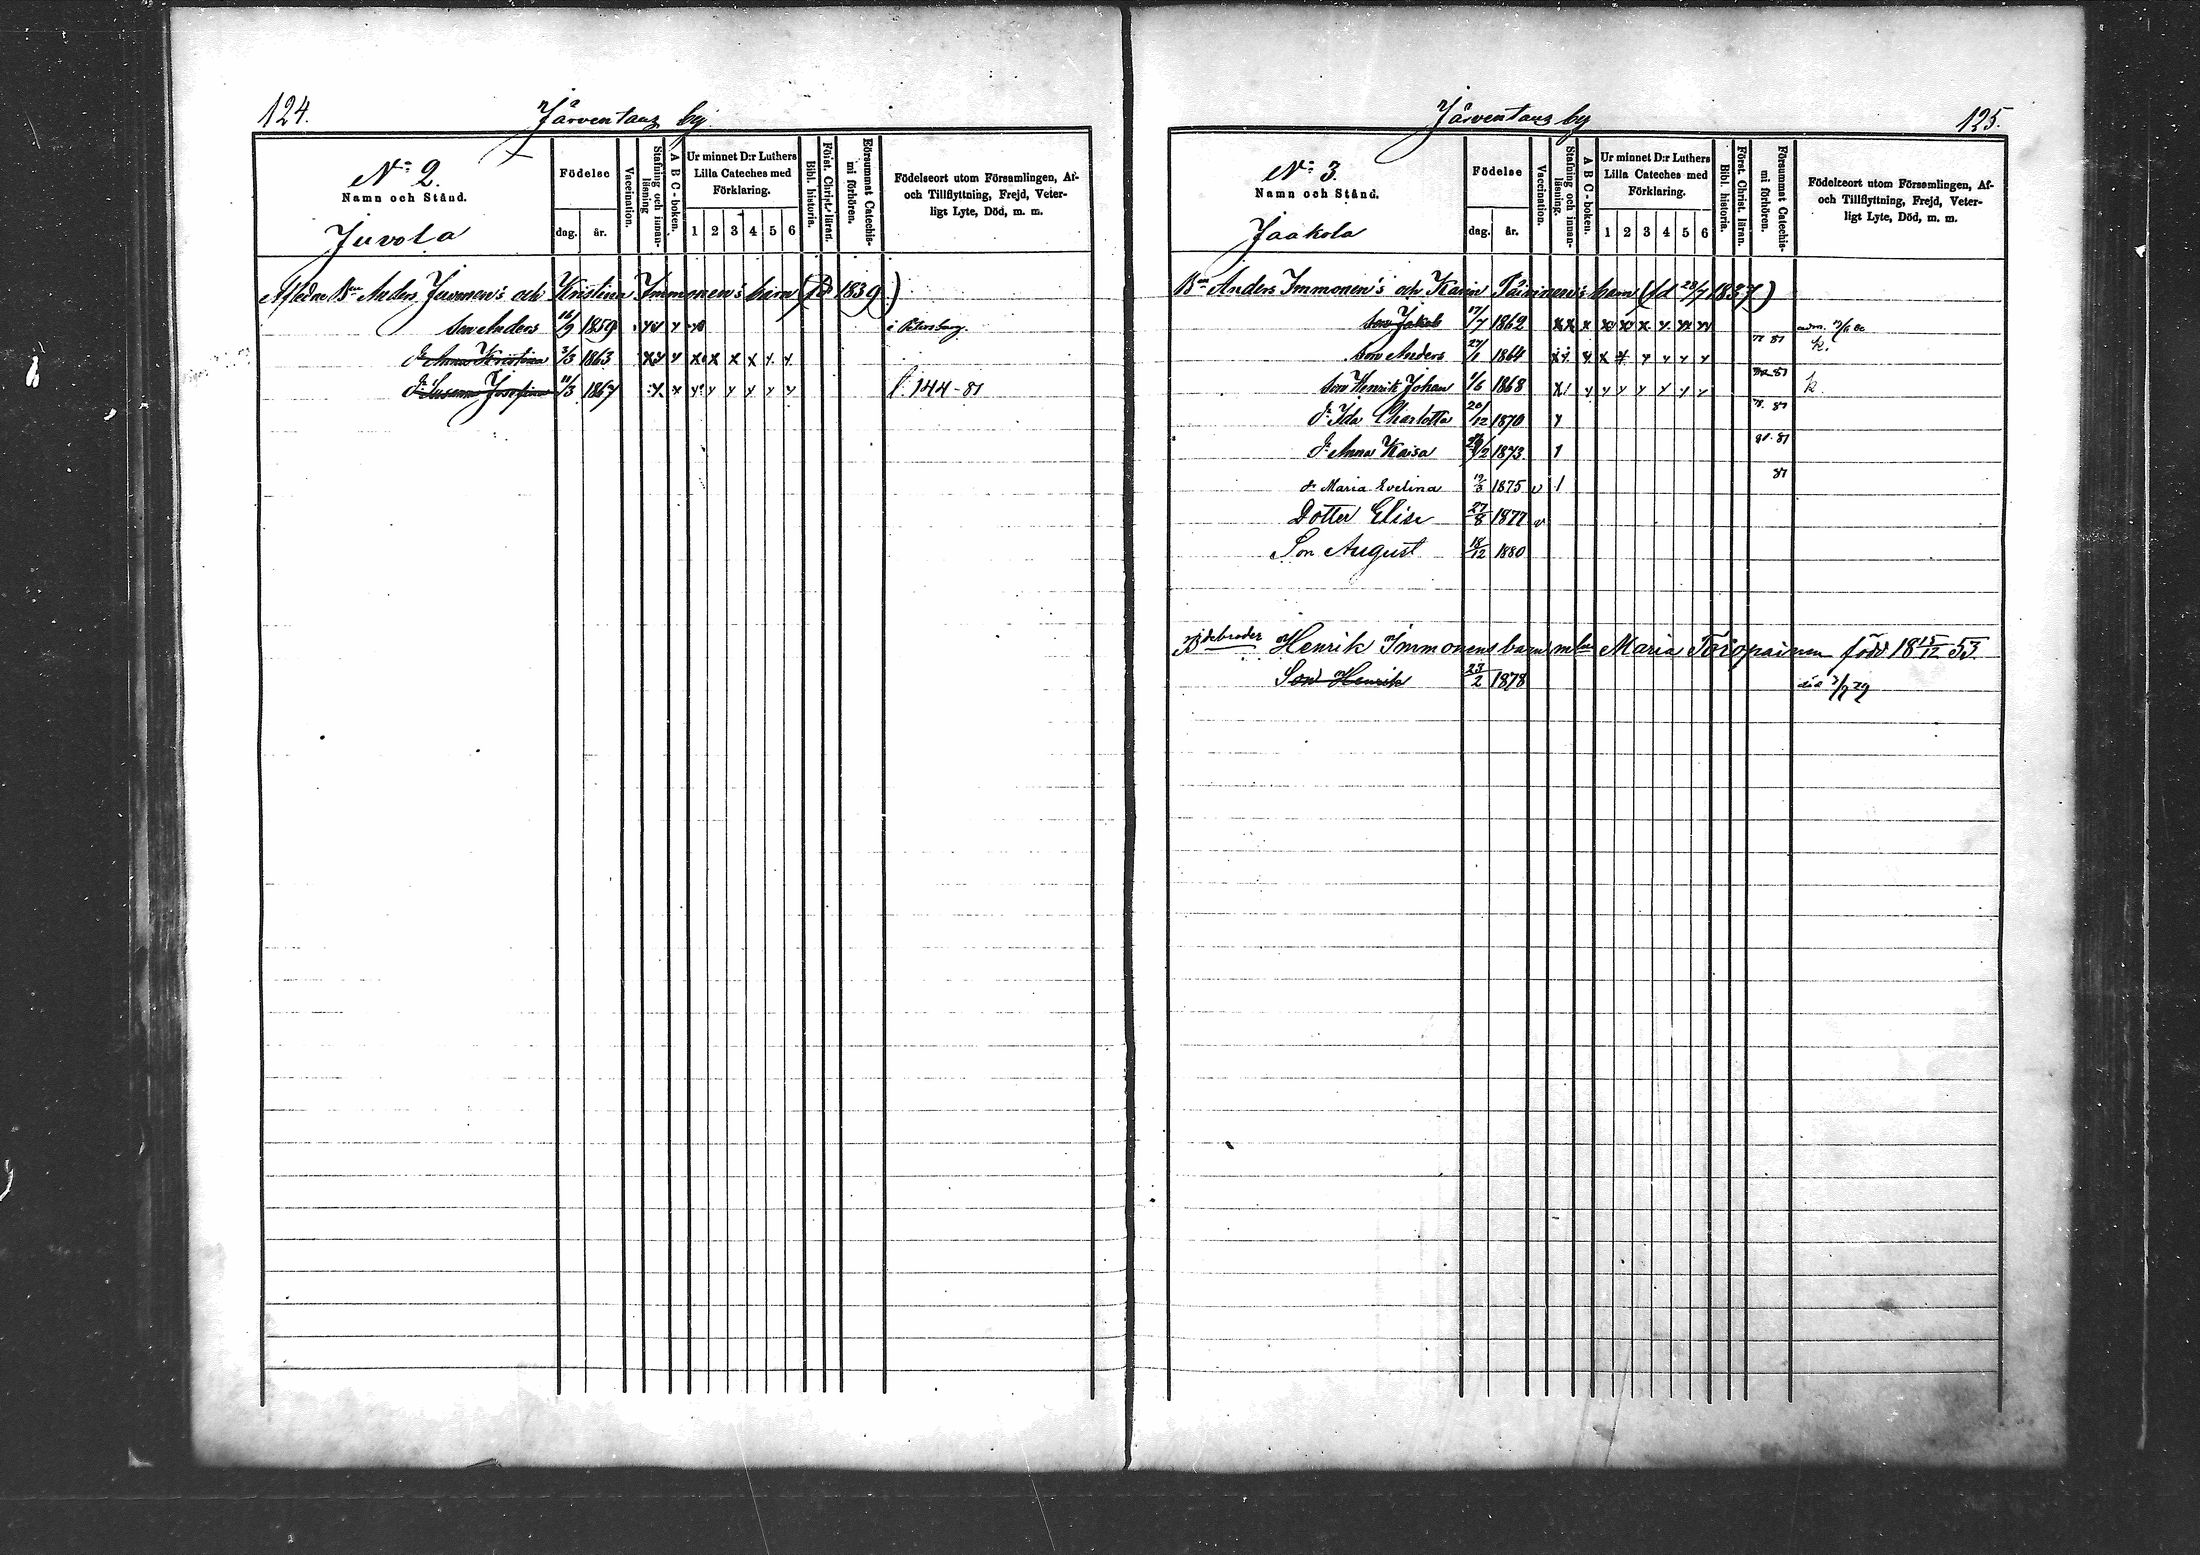 124.
Järventaus by
No 2.
Namn och Stånd.
Juvola
Födelse
dag.
år.
Vaccination.
Stafning och innan-
läsning
A B C - boken.
Ur minnet D:r Luthers
Lilla Cateches med
Förklaring.
1 2 3 4 5 6
Bibl. historia.
Först. Christ. läran.
Försummat Catechis-
mi förhören.
Födelseort utom Församlingen, Af-
och Tillflyttning, Frejd, Veter-
ligt Lyte, Död, m. m.
Afledne Bn Anders Juvonen's och Kristina Immonen's barn (fd 1839)
Son Anders 16/9 1859 i Petersburg.
dr Anna Kristina 3/3 1863
dr Susanna Josefina 11/3 1867 l. 144-81
Järventaus by
125.
No 3.
Namn och Stånd.
Jaakola
Födelse
dag.
år.
Vaccination.
Stafning och innan-
läsning.
A B C - boken.
Ur minnet D:r Luthers
Lilla Cateches med
Förklaring.
1 2 3 4 5 6
Bibl. historia.
Först. Christ. läran.
Försummat Catechis-
mi förhören.
Födelseort utom Församlingen, Af-
och Tillflyttning, Frejd, Veter-
ligt Lyte, Död, m. m.
Bn Anders Immonen's och Karin Päivinen's barn (fd 28/7 1837)
Son Jakob 17/7 1862
Son Anders 1864 81 k.
Son Henrik Johan 1/6 1868 81 k.
dr Ida Charlotta 20/12 1870 81
dr Anna Kaisa 1873 81
dr Maria Evelina 19/3 1875 v 81
Dotter Elise 27/8 1877 v
Son August 18/12 1880
Henrik Immonens barn m hu Maria Toiopainen född 18 15/12 53.
Son Henrik 23/2 1878